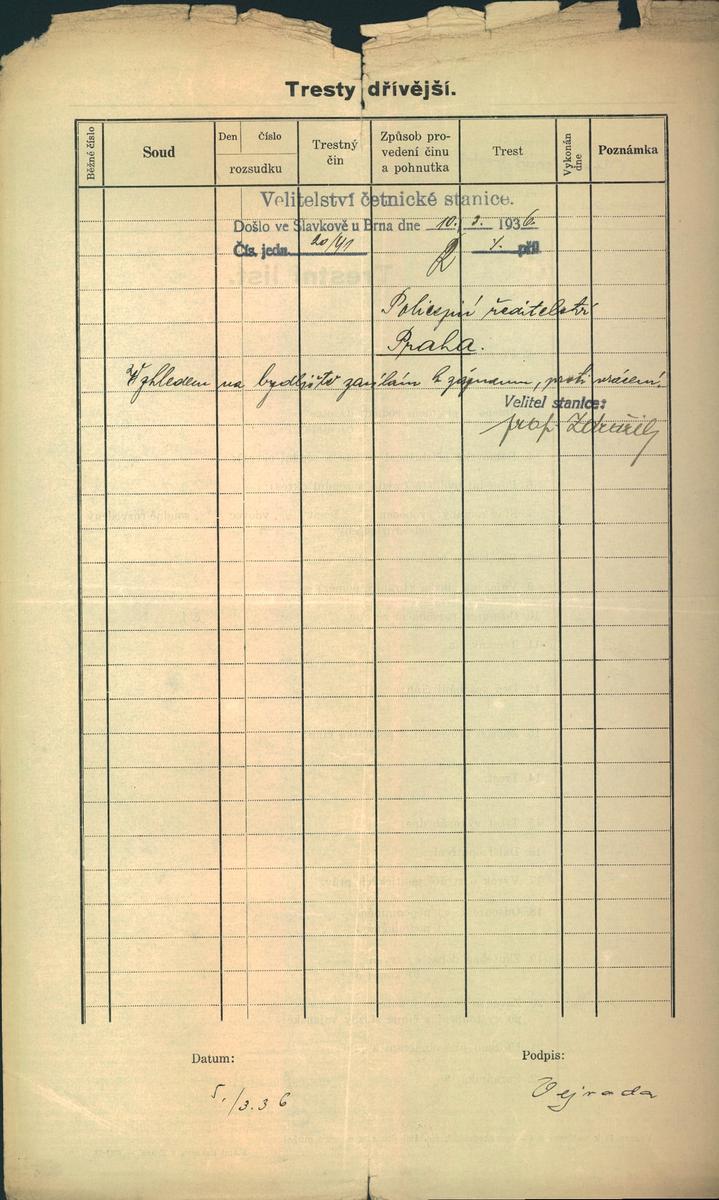 Tresty dřívější.
Běžné číslo
Soud
Den
číslo
rozsudku
Trestný
čin
Způsob pro-
vedení činu
a pohnutka
Trest
Vykonán
dne
Poznámka
Velitelství četnické stanice.
Došlo ve Slavkově u Brna dne 10. 3. 1936.
Čís. jedn. 20/41 přil
Policejní ředitelství
Praha.
Vzhledem na bydliště zasílám k záznamu, proti vrácení.
Velitel stanice:
Datum:
Podpis:
5./3.36
Vejvoda